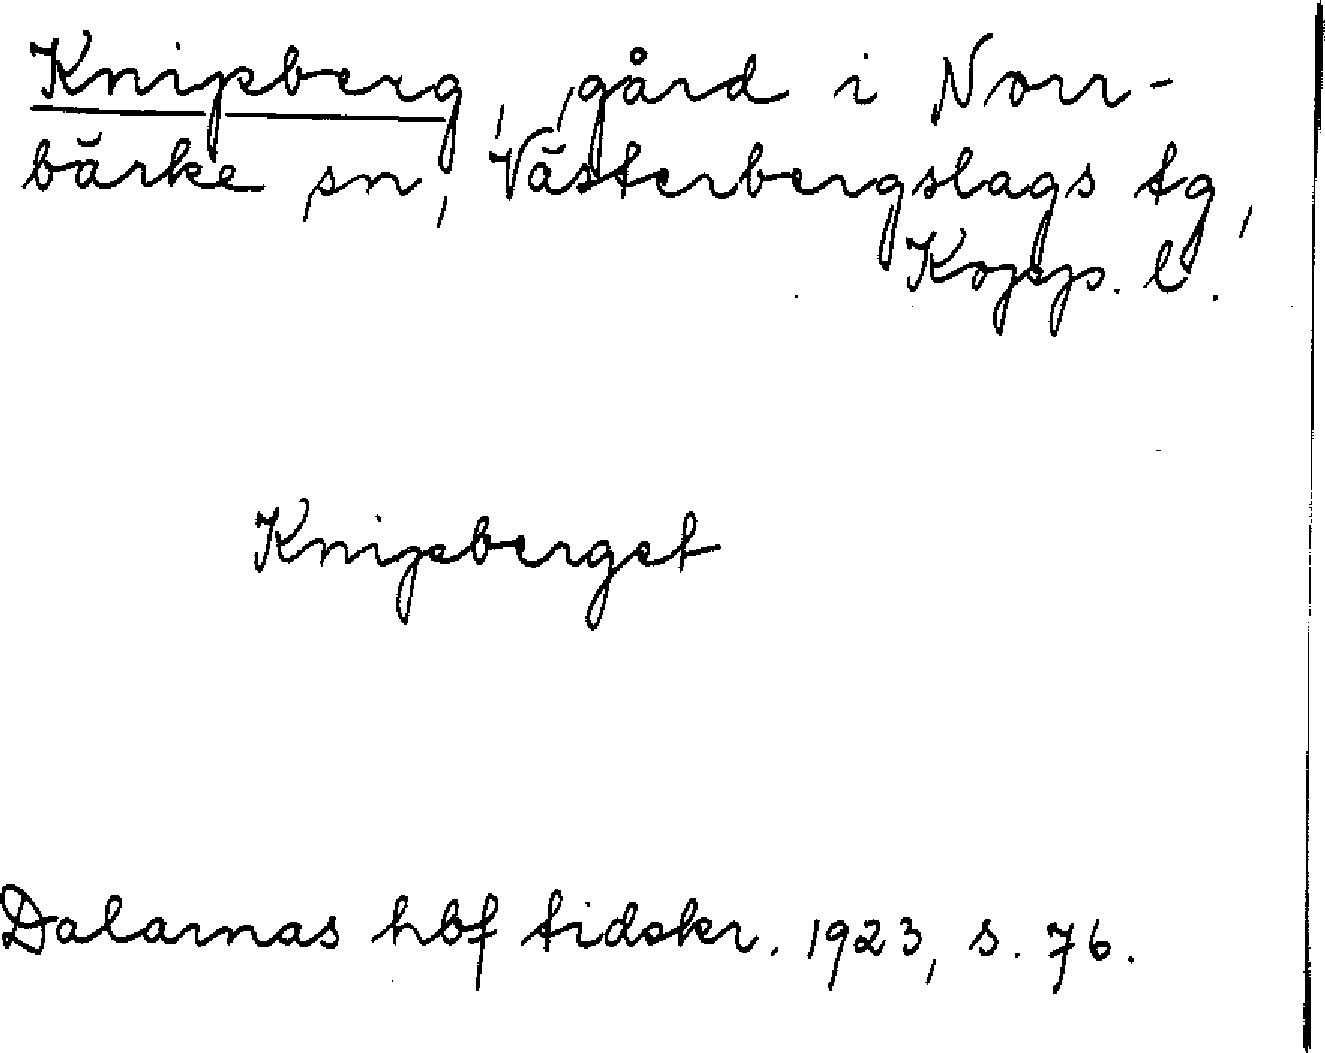 Knipberg, gård i Norr-
bärke sn, Västerbergslags tg,
Kopp. l.
Knipberget
Dalarnas hbf tidskr. 1923, s. 76.